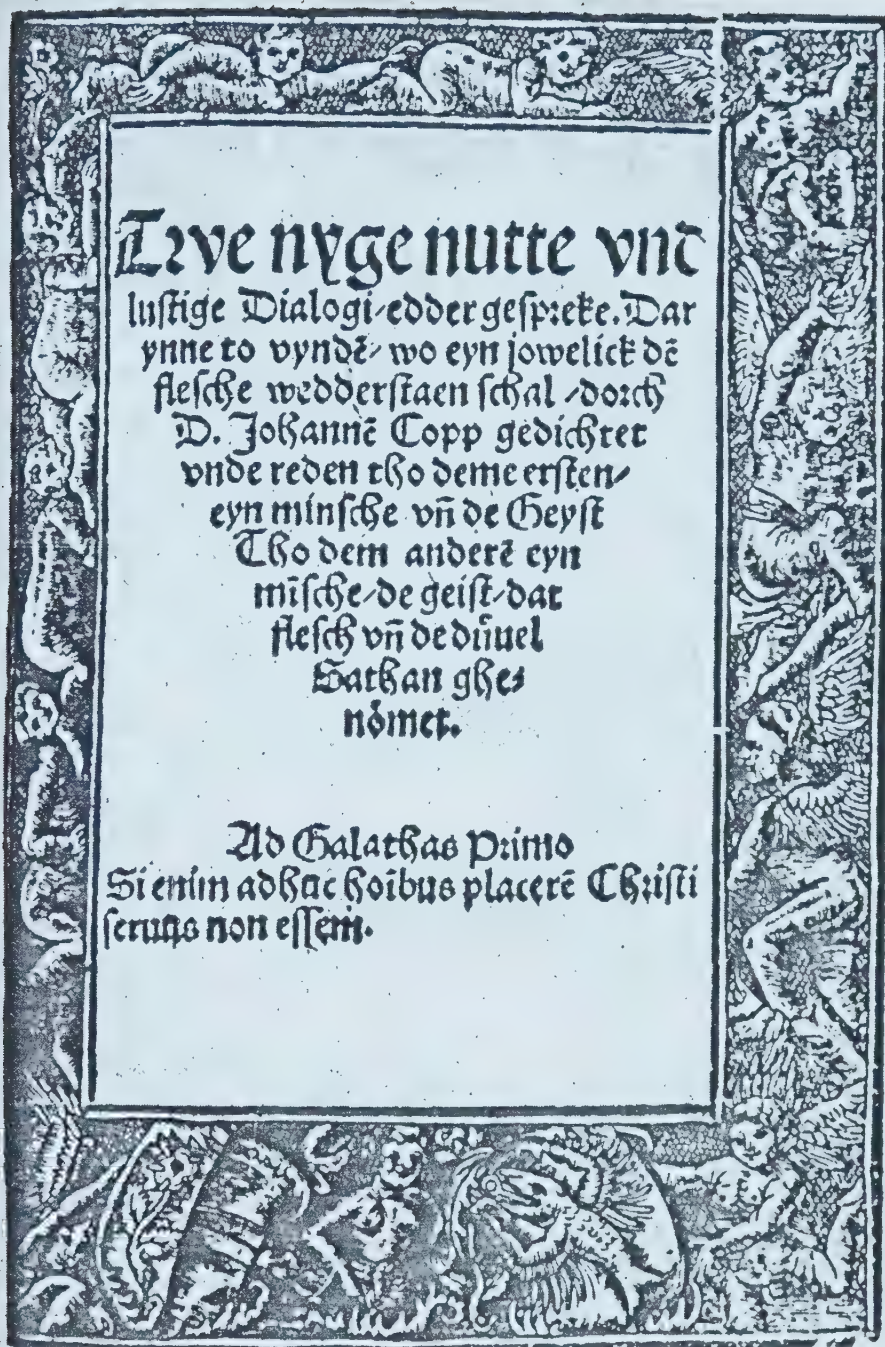 Twe nyge nutte vnd
lustige Dialogi/edder gespreke. Dar
ynne to vyndē/ wo eyn jowelick dē
flesche wedderstaen schal /dorch
D. Johannē Copp gedichtet
vnde reden tho deme ersten/
eyn minsche vn̄ de Geyst
Tho dem anderē eyn
mīsche/de geist/dat
flesch vn̄ de düuel
Sathan ghe⸗
nömet.
Ad Galathas Primo
Si enim adhuc hoībus placerē Christi
seruus non essem.